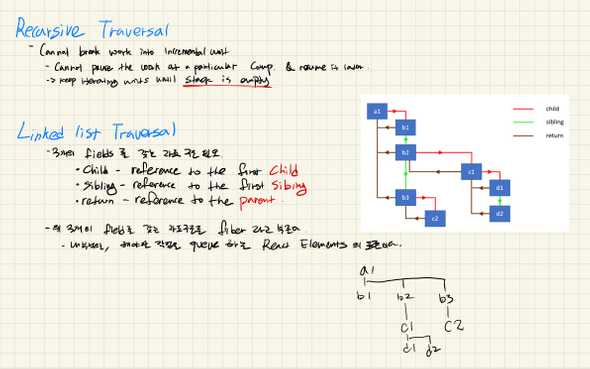 Recursive Traversal
- Cannot break work into incremental unit
- Cannot pause the work at a particular Comp. & resume it later.
-> keep iterating units until stack is empty
Linked list Traversal
- 3개의 fields 를 갖는 자료구조 필요
• Child - reference to the first Child
• Sibling - reference to the first Sibling
• return - reference to the parent.
- 위 3개의 field를 갖는 자료구조를 fiber 라고 부른다
- 내부적으로, 해야할 작업을 queue 하는 React Elements 의
a1
b1
b2
b3
c1
c2
d1
d2
child
sibling
return
a1
b1 b2 b3
c1 c2
d1 d2